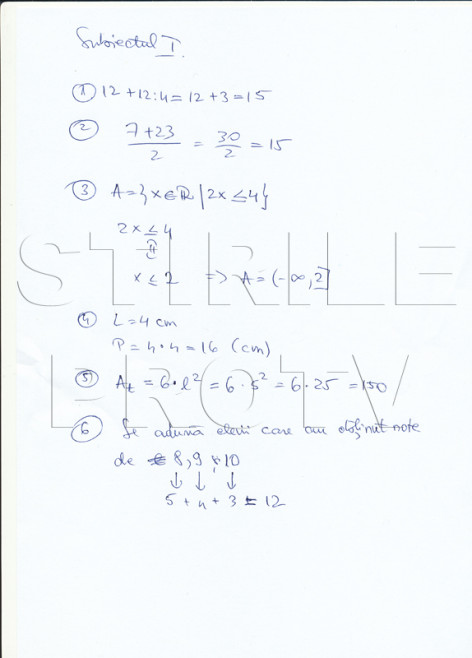 Subiectul I.
1) 12 + 12 : 4 = 12 + 3 = 15
2) (7+23)/2 = 30/2 = 15
3) A = {x ∈ ℝ | 2x ≤ 4}
2x ≤ 4
x ≤ 2 => A = (-∞, 2]
4) L = 4 cm
P = 4 · 4 = 16 (cm)
5) At = 6 · l² = 6 · 5² = 6 · 25 = 150
6) Se adună elevii care au obținut note
de 8, 9 și 10
↓ ↓ ↓
5 + 4 + 3 = 12
STIRILE
PROTV